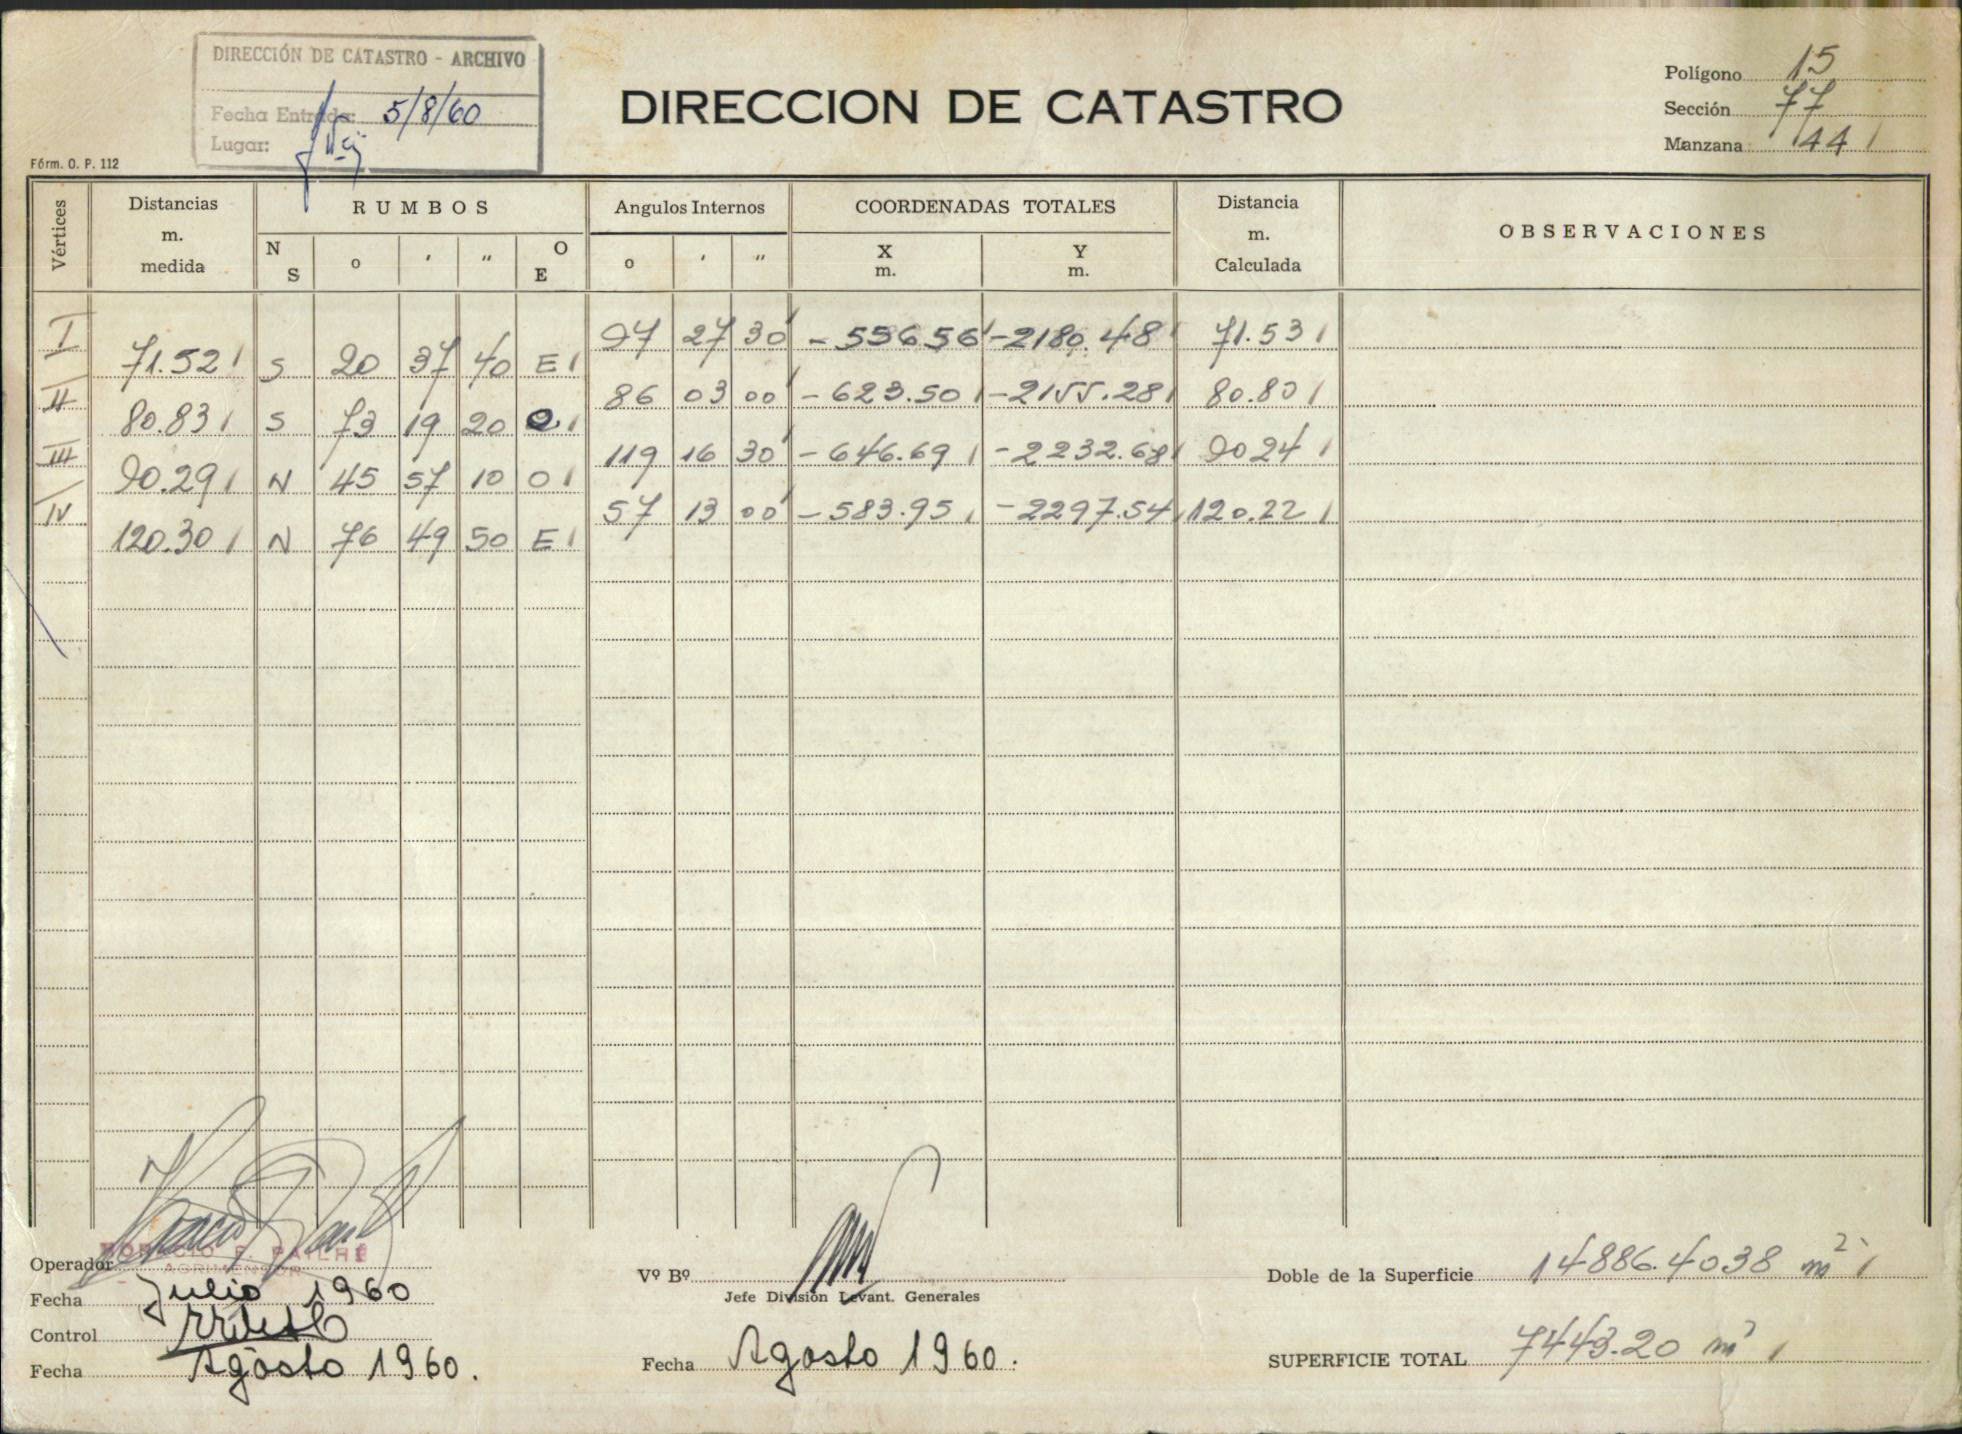 DIRECCIÓN DE CATASTRO - ARCHIVO
Fecha Entrada: 5/8/60
Lugar:
Fórm. O. P. 112
DIRECCION DE CATASTRO
Polígono 15
Sección 77
Manzana 44
Vértices
Distancias m. medida
RUMBOS
N S o ' " O E
Angulos Internos
o ' "
COORDENADAS TOTALES
X m. Y m.
Distancia m. Calculada
OBSERVACIONES
I 97 27 30 -556.56 -2180.48 71.53
71.52 S 20 37 40 E
II 86 03 00 -623.50 -2155.28 80.80
80.83 S 73 19 20 O
III 119 16 30 -646.69 -2232.68 90.24
90.29 N 45 57 10 O
IV 57 13 00 -583.95 -2297.54 120.22
120.30 N 76 49 50 E
HORACIO E. PAILHÉ
AGRIMENSOR
Operador
Fecha Julio 1960
Control
Fecha Agosto 1960.
Vº Bº
Jefe División Levant. Generales
Fecha Agosto 1960.
Doble de la Superficie 14886.4038 m²
SUPERFICIE TOTAL 7443.20 m²